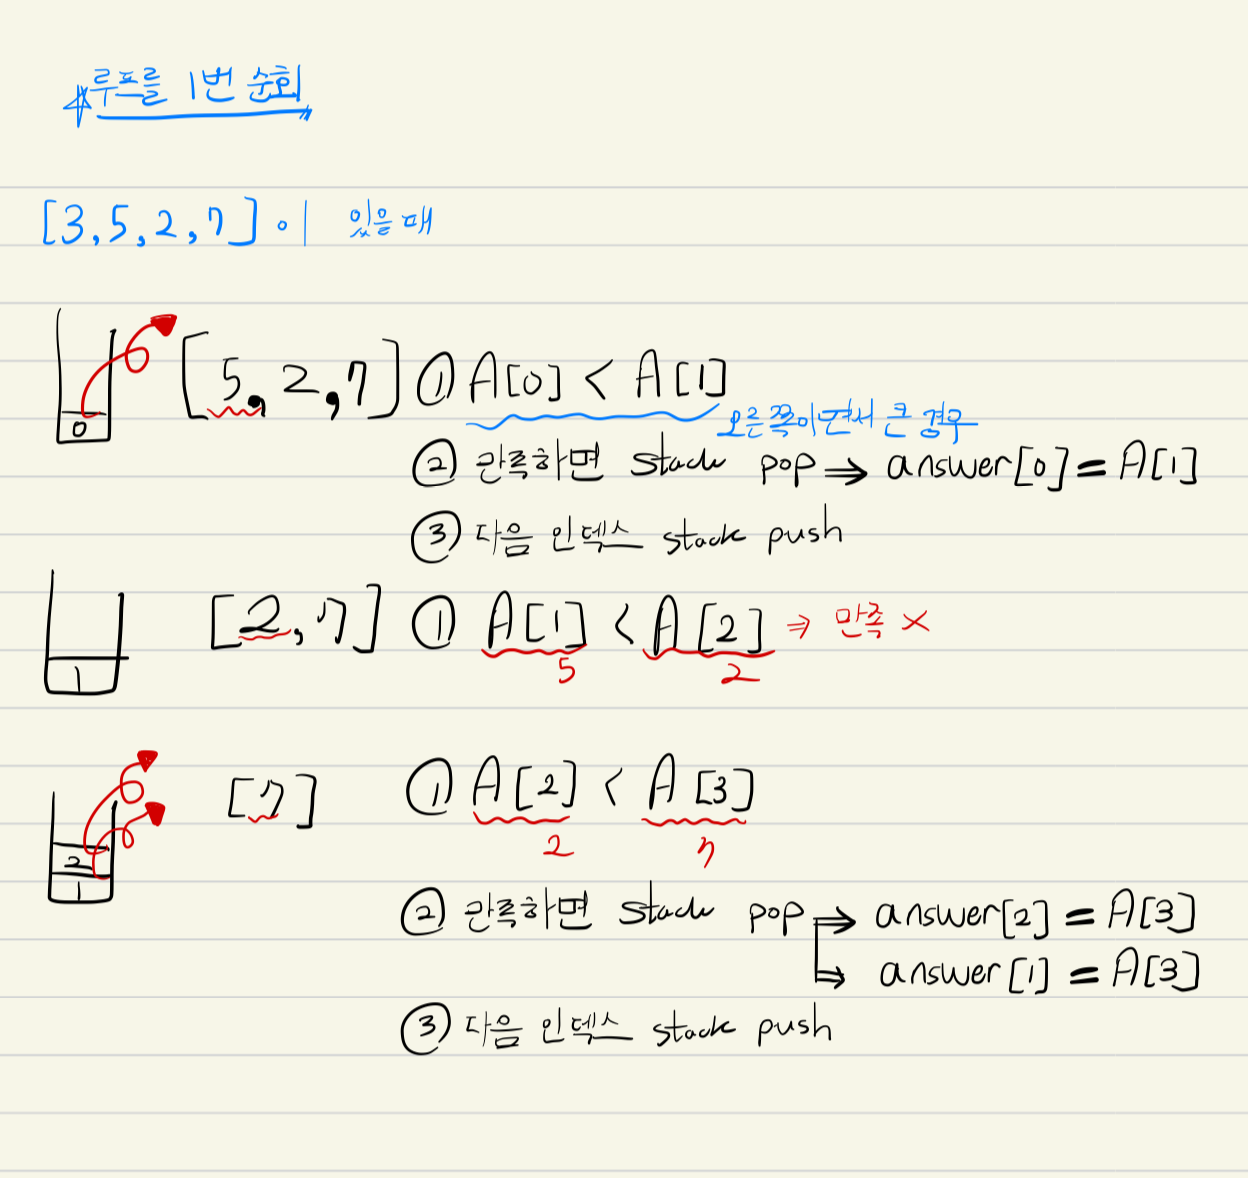 *루프를 1번 순회
[3,5,2,7]이 있을 때
0 [5,2,7] ① A[0] < A[1]
오른쪽이면서 큰 경우
② 만족하면 stack pop ⇒ answer[0] = A[1]
③ 다음 인덱스 stack push
1 [2,7] ① A[1] < A[2] ⇒ 만족 X
5 2
[7] ① A[2] < A[3]
2 7
2
1
② 만족하면 stack pop ⇒ answer[2] = A[3]
⇒ answer[1] = A[3]
③ 다음 인덱스 stack push